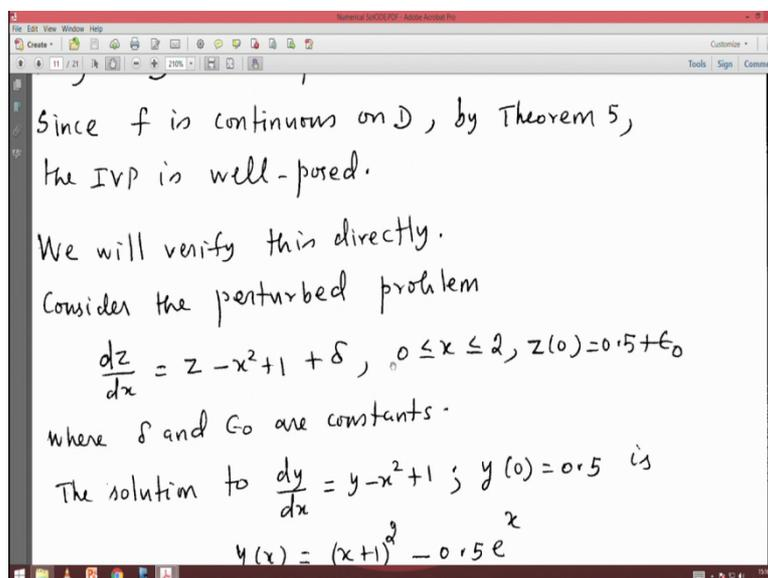 Numerical SolODE.PDF - Adobe Acrobat Pro
File Edit View Window Help
Create Customize
11 / 21 210% Tools Sign Comme
Since f is continuous on D, by Theorem 5,
the IVP is well-posed.
We will verify this directly.
Consider the perturbed problem
dz/dx = z - x² + 1 + δ, 0 ≤ x ≤ 2, z(0) = 0.5 + ϵ₀
where δ and ϵ₀ are constants.
The solution to dy/dx = y - x² + 1 ; y(0) = 0.5 is
y(x) = (x+1)² - 0.5 eˣ